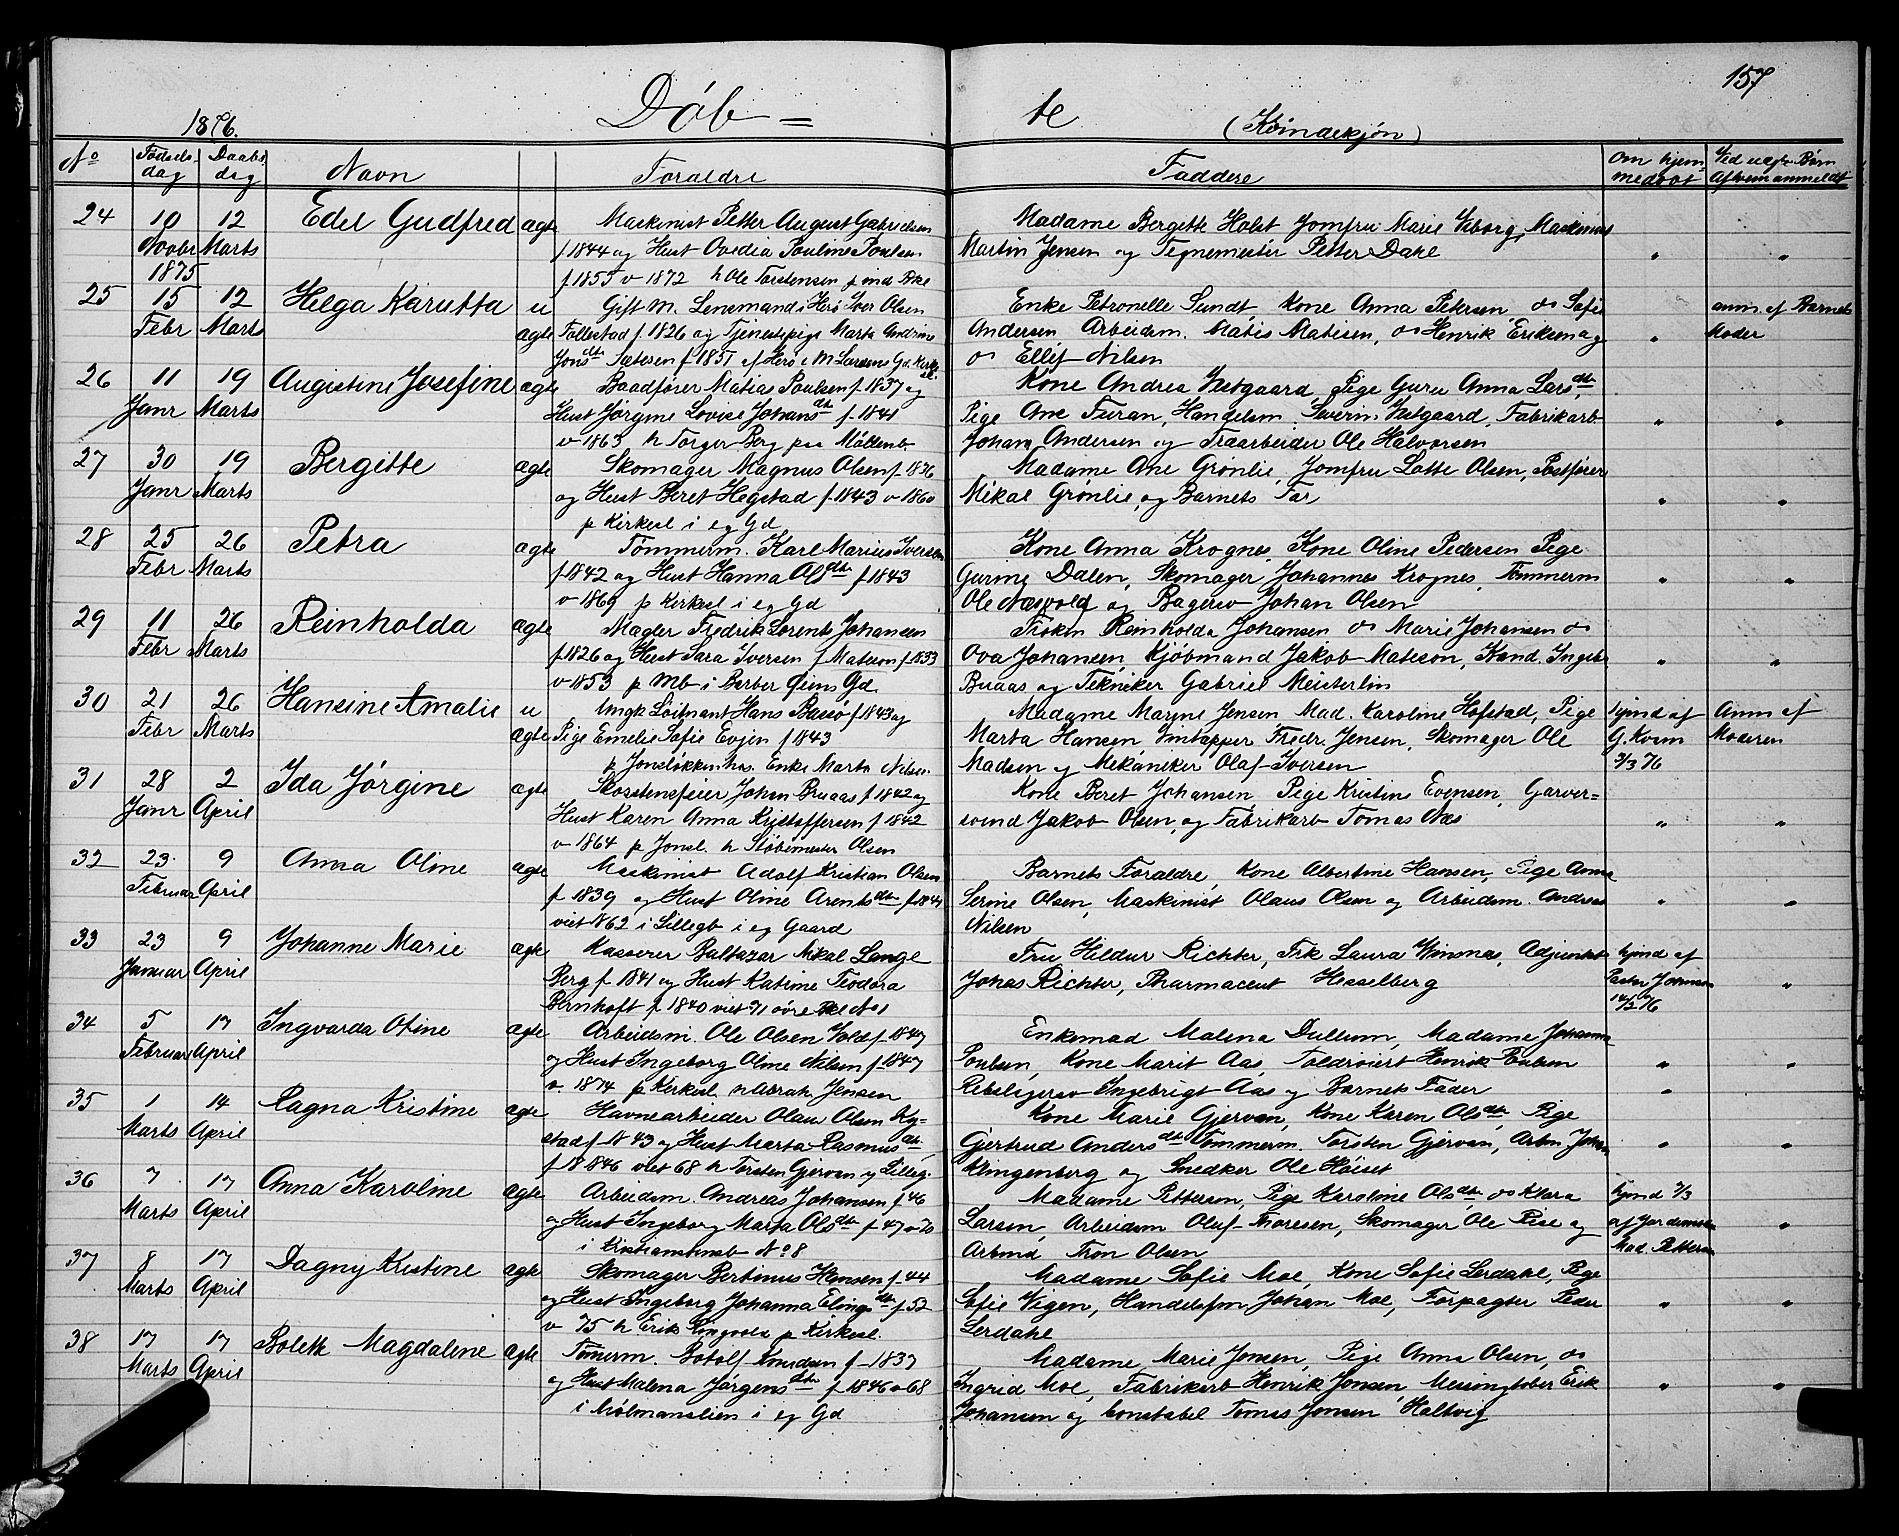 157
1876.
Døb= te (Kvindekjøn)
No Fødsels- dag Daabs dag Navn Foraldre Faddere Om hjem- medøbt Ved uægte Børn Af hvem anmeldt
24 10 Novbr 1875 12 Marts Edel Gudfred ægte
Maskinist Petter August Gabrielsen
f 1844 og Hust Ovedia Pouline Poulsen
f 1855 v 1872 h Ole Torstensen p ind Bke
Madame Bergette Holst Jomfru Marie Viborg, Maskinist
Martin Jensen og Tegnemester Petter Dahl " "
25 15 Febr 12 Marts Helga Karutta u ægte
Gift M. Lensmand i Herø Iver Olsen
Tollestad f 1826 og Tjenestepige Marta Andrine
Jonsdtr Sætersen f 1851 af Herø i M Larsens Gd Kirkesl.
Enke Petronelle Sundt, Kone Anna Petersen, do Sofie
Andersen Arbeidsm. Matis Matisen, do Henrik Eriksen og
do Ellef Nilsen
" anm. af Barnets Moder
26 11 Janr 19 Marts Augustine Josefine ægte
Baadfører Matias Poulsen f 1837 og
Hust Jørgine Lovise Johansdtr f 1841
v 1863 h Torger Berg paa Møllenb
Kone Andrea Vestgaard, Pige Guru Anna Larsdtr,
Pige Ane Furan, Handelsm Severin Vestgaard, Fabrikarb
Johan Andersen og Træarbeider Ole Halvorsen " "
27 30 Janr 19 Marts Bergitte ægte
Skomager Magnus Olsen f 1836
og Hust Beret Hegstad f 1843 v 1860
p Kirkesl i eg Gd
Madame Ane Grønlie, Jomfru Lotte Olsen, Postfører
Mikal Grønlie, og Barnets Far " "
28 25 Febr 26 Marts Petra ægte
Tømmerm. Karl Marius Iversen
f 1842 og Hust Hanna Olsdtr f 1843
v 1869 p Kirkesl i eg Gd
Kone Anna Krognes, Kone Oline Pedersen Pige
Gurine Dalen, Skomager Johannes Krognes, Tømmerm
Ole Næsvold og Bagersv Johan Olsen " "
29 11 Febr 26 Marts Reinholda ægte
Mægler Fredrik Lorents Johansen
f 1826 og Hust Sara Iversen f Mateson f 1833
v 1853 p Mb i Barber Øiens Gd
Frøken Reinholda Johansen do Marie Johansen do
Ova Johansen, Kjøbmand Jakob Mateson, Kand. Ingebr
Buaas og Tekniker Gabriel Meisterlin " "
30 21 Febr 26 Marts Hansine Amalie u ægte
Ungk Løitnant Hans Basø f 1843 og
Pige Emelie Sofie Evjen f 1843
p Jonsløkken hos Enke Marta Nilsen
Madame Maryne Jensen Mad. Karoline Hofstad, Pige
Marta Hansen, Vintapper Fredr. Jensen, Skomager Ole
Madsen og Mekaniker Olaf Iversen
hjmd af G. Kvam 3/3 76 Anm af Moderen
31 28 Janr 2 April Ida Jørgine ægte
Skorstensfeier Johan Bruaas f 1842 og
Hust Karen Anna Kristoffersen f 1842
v 1864 p Jonsl. h Støbemester Olsen
Kone Beret Johansen, Pige Kristine Evensen, Garver=
svend Jakob Olsen, og Fabrikarb Tomas Næs " "
32 23 Februar 9 April Anna Oline ægte
Maskinist Adolf Kristian Olsen
f 1839 og Hust Oline Arentsdtr f 1841
viet 62 i Lillegb i eg Gaard
Barnets Foraldre, Kone Albertine Hansen, Pige Anna
Serine Olsen, Maskinist Olaus Olsen og Arbeidsm. Andreas
Nilsen " "
33 23 Januar 9 April Johanne Marie ægte
Kasserer Baltazar Mikal Lange
Berg f 1841 og Hust Katrine Teodora
Bernhoft f 1840 viet 71 øvre Bkl No 1
Fru Hildur Richter, Frk Laura Wimmer, Adjunkt
Johs Richter, Pharmaceut Hesselberg
hjmd af Pastor 14/2 76 "
34 5 Februar 17 April Ingvarda Ofine ægte
Arbeidsm. Ole Olsen Vold f 1847
og Hust Ingeborg Oline Nilsen f 1847
v 1874 p Kirkesl h Abrah Jensen
Enkemad Malena Dullum, Madame Johanna
Poulsen, Kone Marit Aas, Toldroiert Henrik Poulsen
Rebslagersv Ingebrigt Aas og Barnets Fader " "
35 1 Marts 14 April Ragna Kristine ægte
Havnearbeider Olaus Olsen Ny-
stad f 1843 og Hust Marta Rasmusdtr
f 1846 viet 68 h Torsten Gjervan og Lilleg.
Kone Marie Gjervan, Kone Karen Olsdtr, Pige
Gjertrud Andersdtr Tømmerm. Torsten Gjervan, Arbm Johan
Klingenberg og Snedker Ole Høiset " "
36 7 Marts 17 April Anna Karoline ægte
Arbeidsm. Andreas Johansen f 46
og Hust Ingeborg Marta Olsdtr f 47 v 70
i Kristianstensb No 8
Madame Pettersen, Pige Karoline Olsdtr do Klara
Larsen, Arbeidsm Oluf Thoresen, Skomager Ole Riise og
Arbmd Tron Olsen
hjmd 7/3 af Jordemoder Mad. Petterson "
37 8 Marts 17 April Dagny Kristine ægte
Skomager Bertinus Hansen f 44
og Hust Ingeborg Johanna Elingsdtr f 52
v 75 h Erik Ringvold p Kirkesl.
Madame Sofie Moe, Kone Sofie Lerdahl, Pige
Sofie Vigen, Handelsfm Johan Moe, Forpagter Peder
Lerdahl " "
38 17 Marts 17 April Boleth Magdalene ægte
Tømerm. Botolf Knudsen f 1837
og Hust Malena Jørgensdtr f 1846 v 68
i Mølmanslien i eg Gd
Madame Marie Jensen, Pige Anna Olsen, do
Ingrid Moe, Fabrikarb Henrik Jensen, Messingstøber Erik
Johansen og Constabel Tomas Jensen Haltvig " "